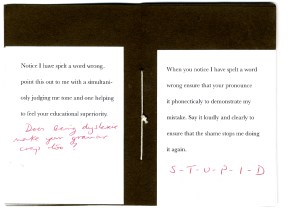 Notice I have spelt a word wrong,
point this out to me with a simultani-
ously judging me tone and one helping
to feel your educational superiority.
Does being dyslexic
make your grammar
crap too?
When you notice I have spelt a word
wrong ensure that your pronounce
it phonetically to demonstrate my
mistake. Say it loudly and clearly to
ensure that the shame stops me doing
it again.
S-T-U-P-I-D